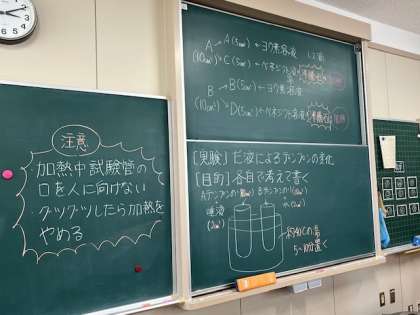 注意
・加熱中試験管の
口を人に向けない
・グツグツしたら加熱を
やめる
A → A(5㎤) ← ヨウ素溶液
(10㎤) → C(5㎤) ← ベネジクト溶液
B → B(5㎤) ← ヨウ素溶液
(10㎤) → D(5㎤) ← ベネジクト溶液
[実験] だ液によるデンプンの変化
[目的] 各自で考えて書く
Aデンプンのり Bデンプンのり
唾液
水
約40℃の湯
5~10分置く